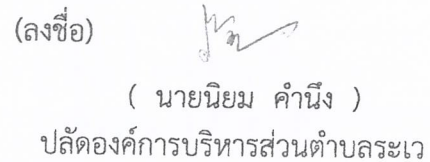 (ลงชื่อ)
( นายนิยม คำนึง )
ปลัดองค์การบริหารส่วนตำบลระเว